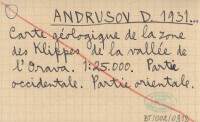 ANDRUSOV D. 1931...
Carte géologique de la zone
des Klippes de la vallée de
l'Orava. 1:25.000. Partie
occidentale. Partie orientale.